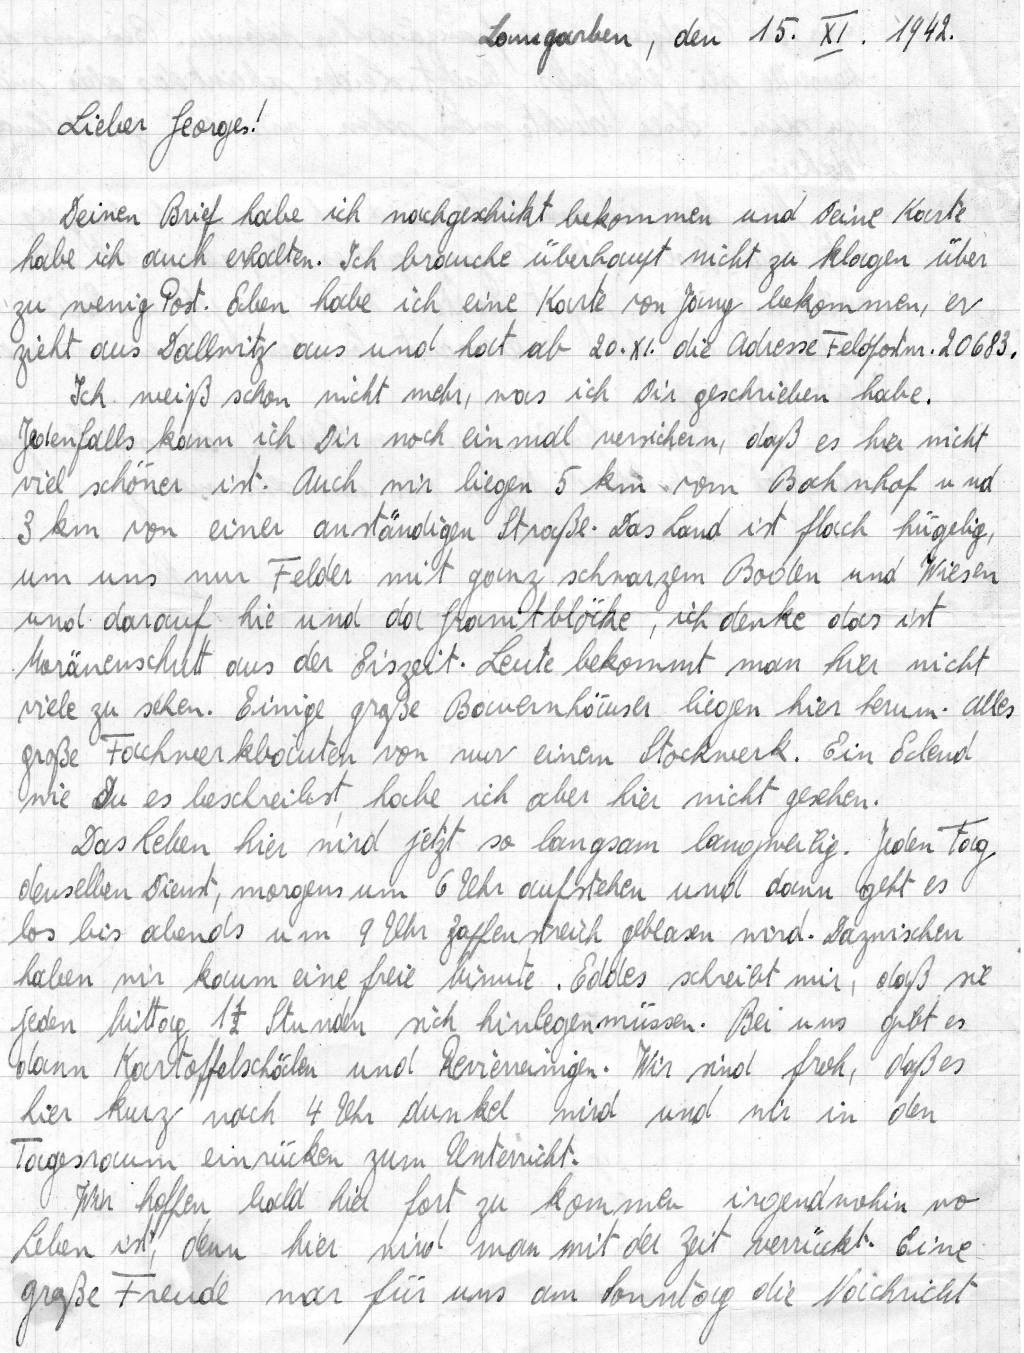 Lamgarben, den 15. XI. 1942.
Lieber Georges!
Deinen Brief habe ich nachgeschikt bekommen und Deine Karte
habe ich auch erhalten. Ich brauche überhaupt nicht zu klagen über
zu wenig Post. Eben habe ich eine Karte von Jang bekommen, er
zieht aus Dallwitz aus und hat ab 20. XI. die Adresse Feldpostnr. 20683.
Ich weiß schon nicht mehr, was ich Dir geschrieben habe.
Jedenfalls kann ich Dir noch einmal versichern, daß es hier nicht
viel schöner ist. Auch wir liegen 5 km vom Bahnhof und
3 km von einer anständigen Straße. Das Land ist flach hügelig,
um uns nur Felder mit ganz schwarzem Boden und Wiesen
und darauf hie und da Granitblöcke, ich denke das ist
Moränenschutt aus der Eiszeit. Leute bekommt man hier nicht
viele zu sehen. Einige große Bauernhäuser liegen hier herum. alles
große Fachwerkbauten von nur einem Stockwerk. Ein Elend
wie Du es beschreibst, habe ich aber hier nicht gesehen.
Das Leben hier wird jetzt so langsam langweilig. Jeden Tag
denselben Dienst, morgens um 6 Uhr aufstehen und dann geht es
los bis abends um 9 Uhr Zapfenstreich geblasen wird. Dazwischen
haben wir kaum eine freie Minute. Eddes schreibt mir, daß sie
jeden Mittag 1½ Stunden sich hinlegen müssen. Bei uns gibt es
dann Kartoffelschälen und Revierreinigen. Wir sind froh, daß es
hier kurz nach 4 Uhr dunkel wird und wir in den
Tagesraum einrücken zum Unterricht.
Wir hoffen bald hier fort zu kommen irgendwohin wo
Leben ist, denn hier wird man mit der Zeit verrückt. Eine
große Freude war für uns am Sonntag die Nachricht